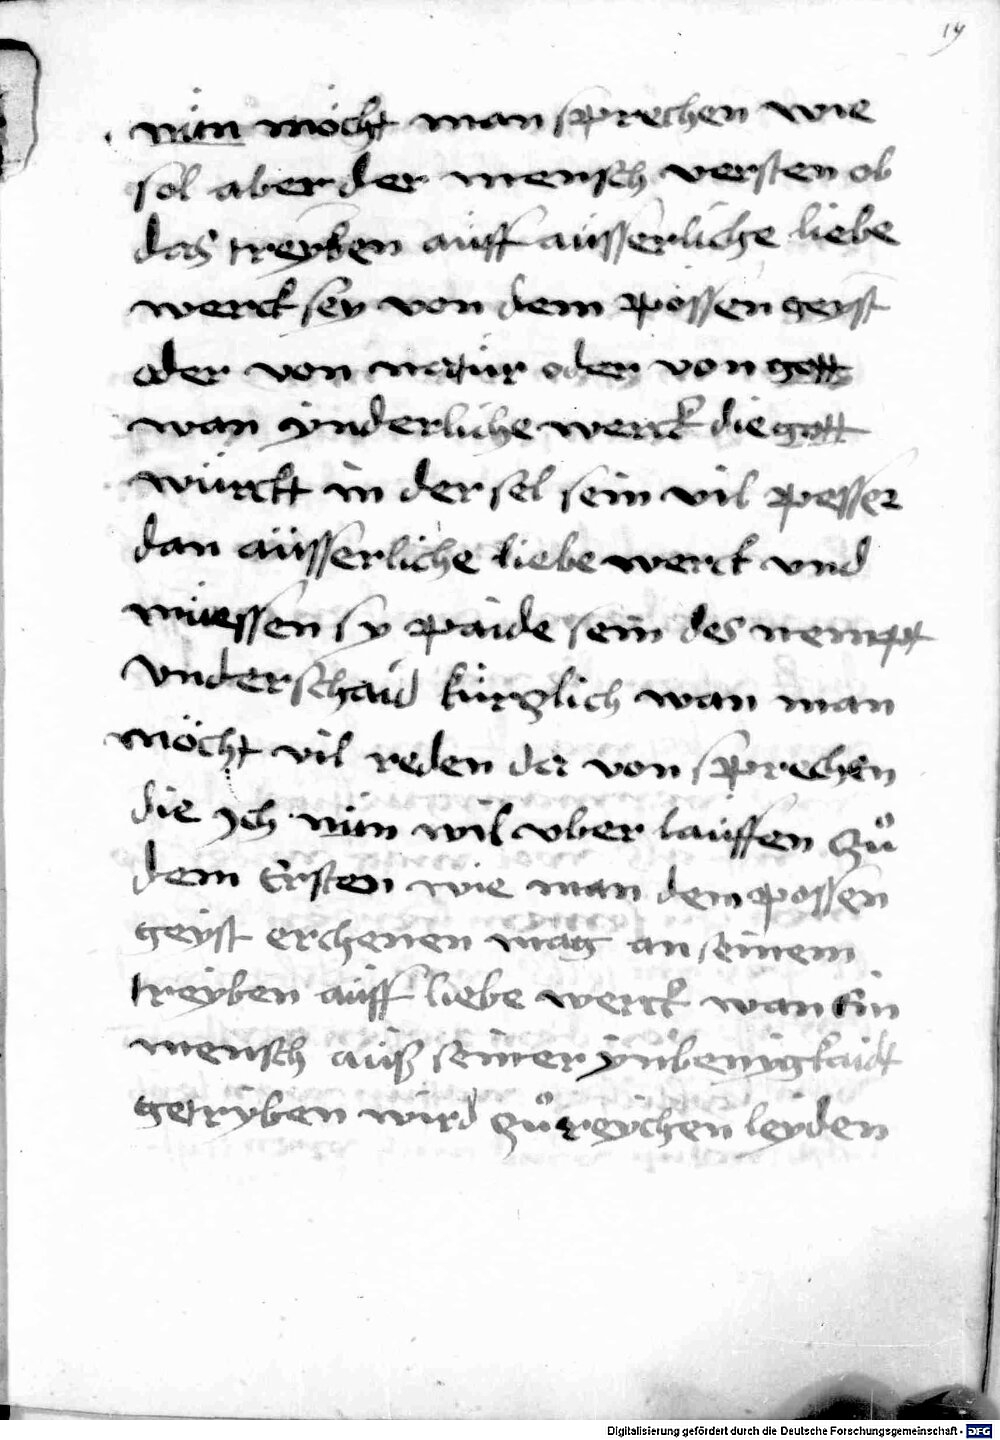 19
nün möcht man sprechen wie
sol aber der mensch versten ob
das treyben aüff aüsserliche liebe
werck sey von dem possen geyst
oder von natür oder von gott
wan ynderliche werck die gott
würckt in der sel sein vil pesser
dan aüsserliche liebe werck vnd
müessen sy paide sein des nempt
vnderschaid kürzlich wan man
möcht vil reden dar von sprechen
die ych nün wil vber laüffen zů
dem Ersten wie man dem possen
geyst erchenen mag an seinem
treyben aüff liebe werck wan Ein
mensch aüß seiner ynbenigkaidt
getryben wird zů reychen leyden
Digitalisierung gefördert durch die Deutsche Forschungsgemeinschaft - DFG